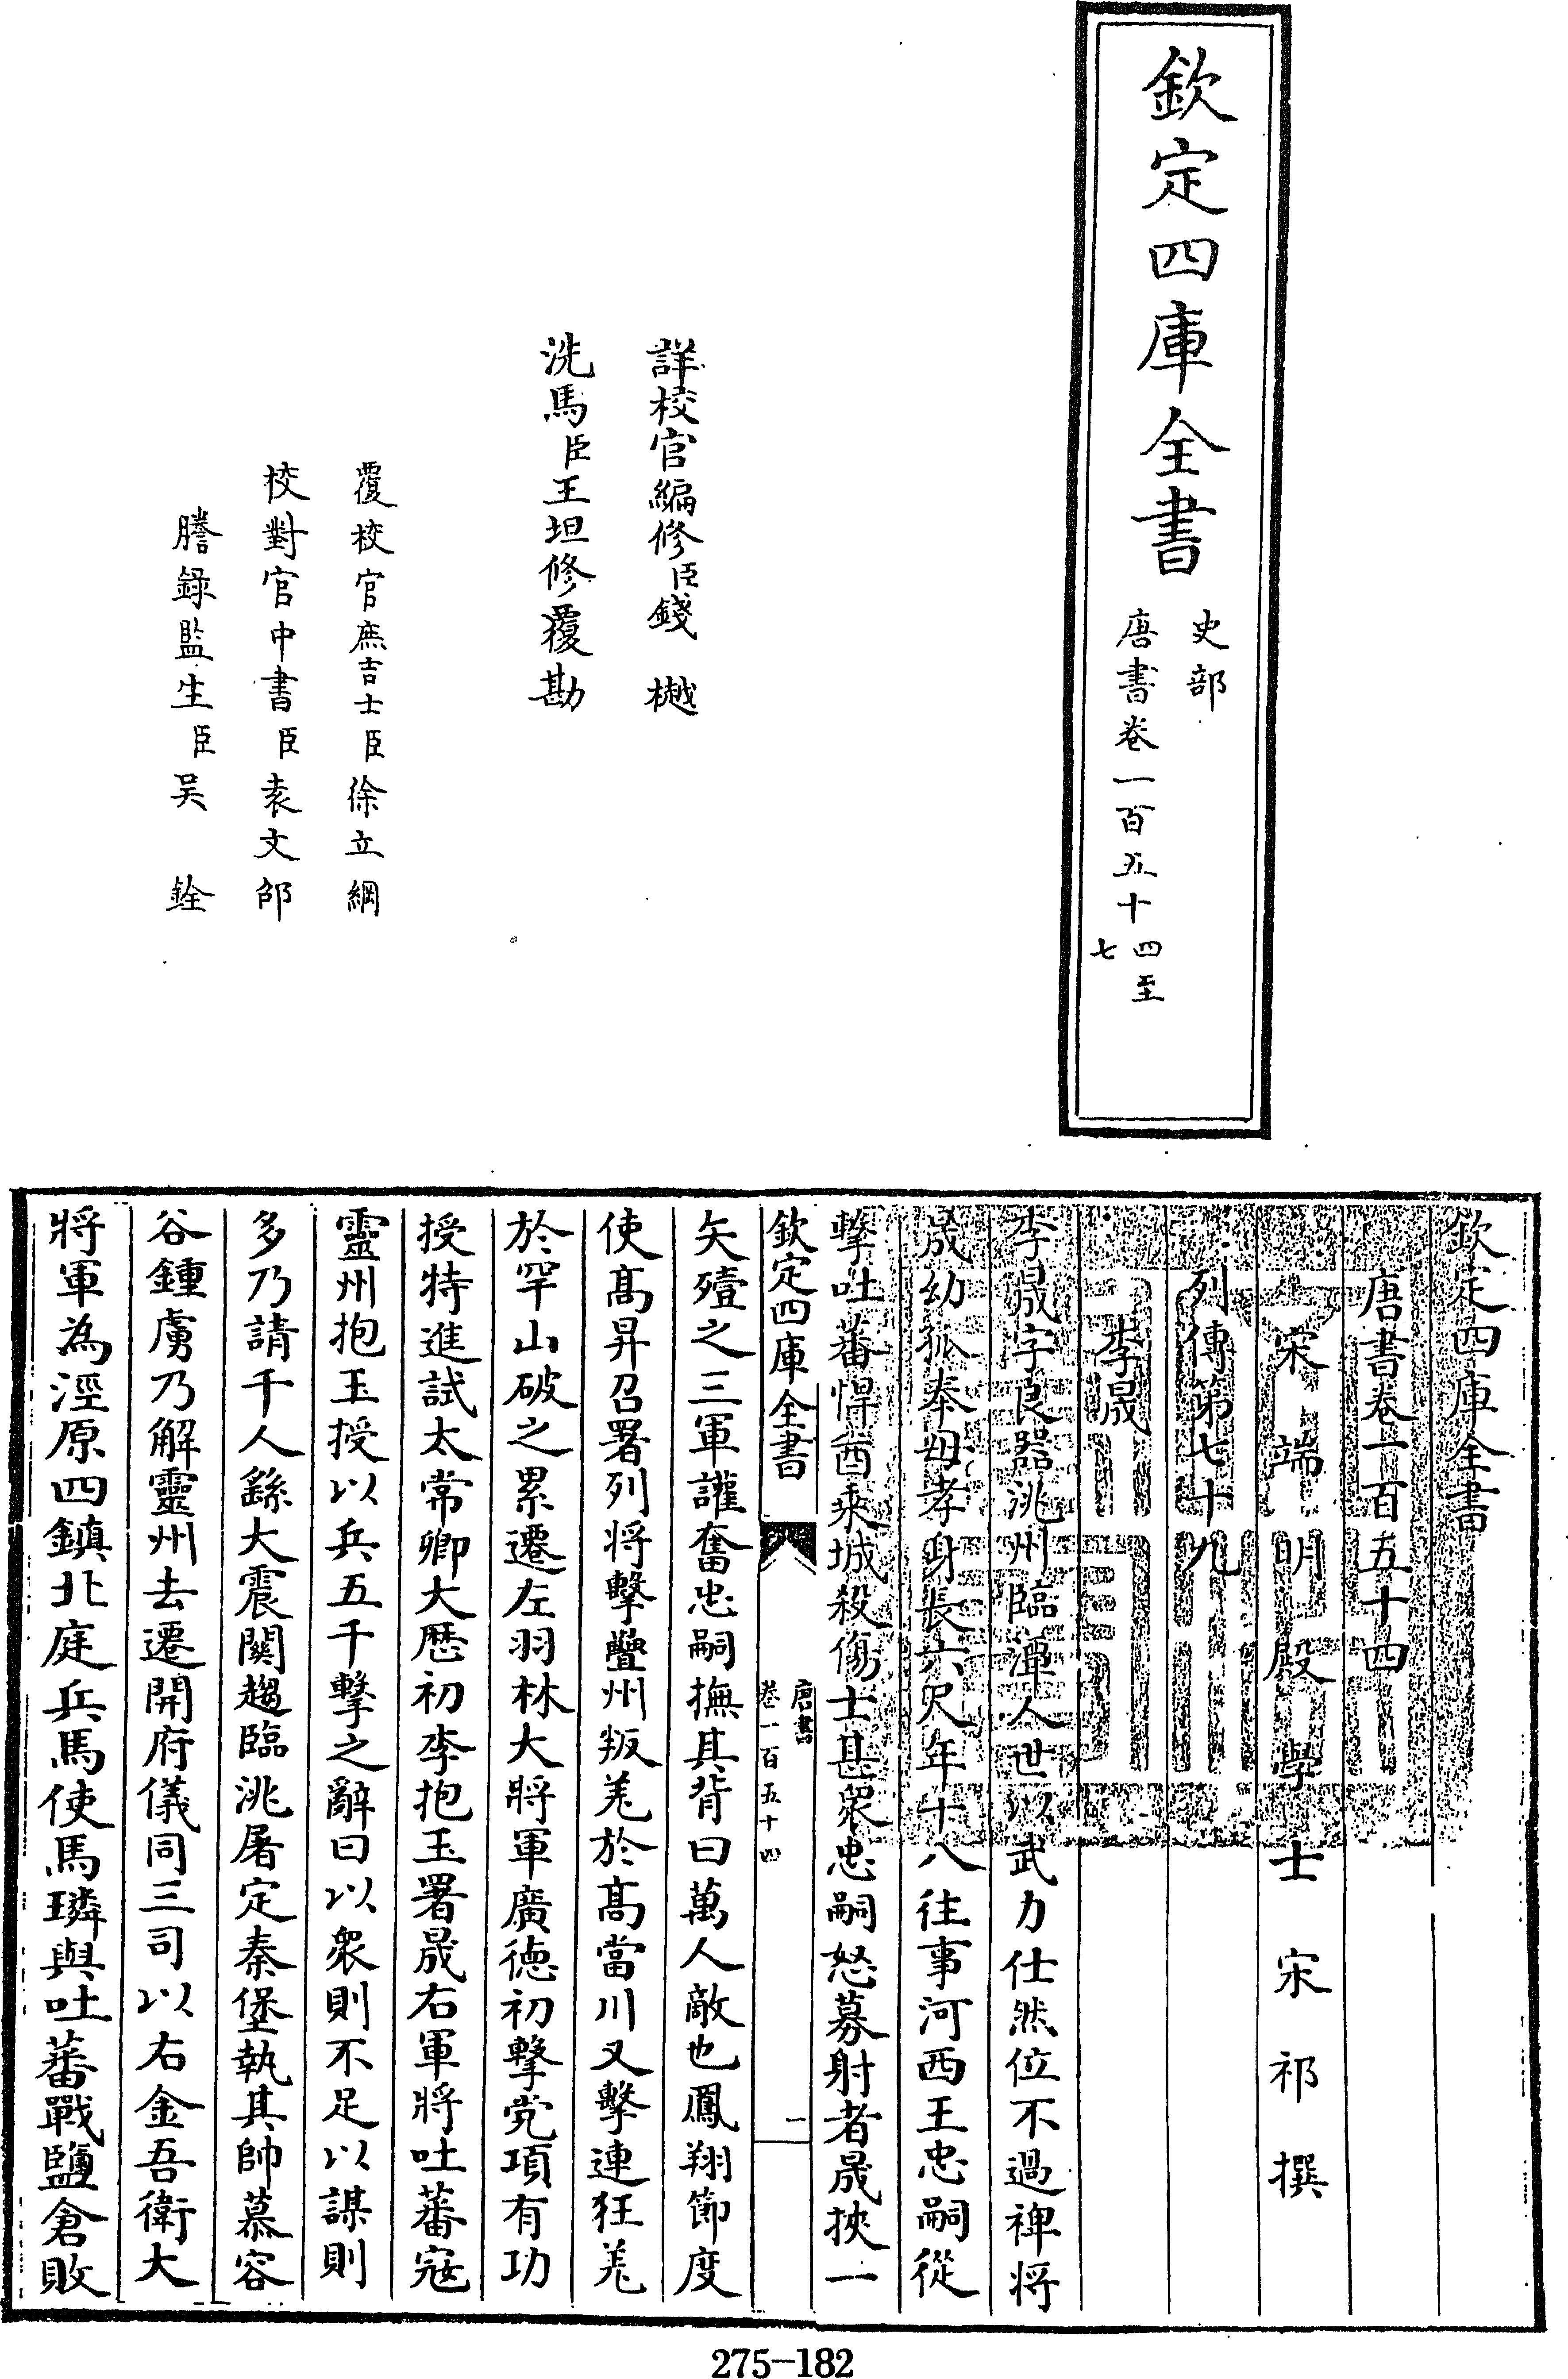 欽定四庫全書
史部
唐書卷一百五十四至
七
詳校官編修臣錢樾
洗馬臣王坦修覆勘
覆校官庶吉士臣徐立綱
校對官中書臣袁文邵
謄録監生臣吴銓
欽定四庫全書
唐書卷一百五十四
宋端明殿學士宋祁撰
列傳第七十九
李晟
李晟字良器洮州臨潭人世以武力仕然位不過裨将
晟幼孤奉母孝身長六尺年十八往事河西王忠嗣從
擊吐蕃悍酋乘城殺傷士甚衆忠嗣怒募射者晟挾一
欽定四庫全書
唐書
卷一百五十四
一
矢殪之三軍讙奮忠嗣撫其背曰萬人敵也鳳翔節度
使髙昇召署列将擊疊州叛羌於髙當川又擊連狂羌
於罕山破之累遷左羽林大將軍廣徳初擊党項有功
授特進試太常卿大厯初李抱玉署晟右軍將吐蕃寇
靈州抱玉授以兵五千擊之辭曰以衆則不足以謀則
多乃請千人繇大震關趨臨洮屠定秦堡執其帥慕容
谷鍾虜乃解靈州去遷開府儀同三司以右金吾衛大
將軍為涇原四鎮北庭兵馬使馬璘與吐蕃戰鹽倉敗
275-182